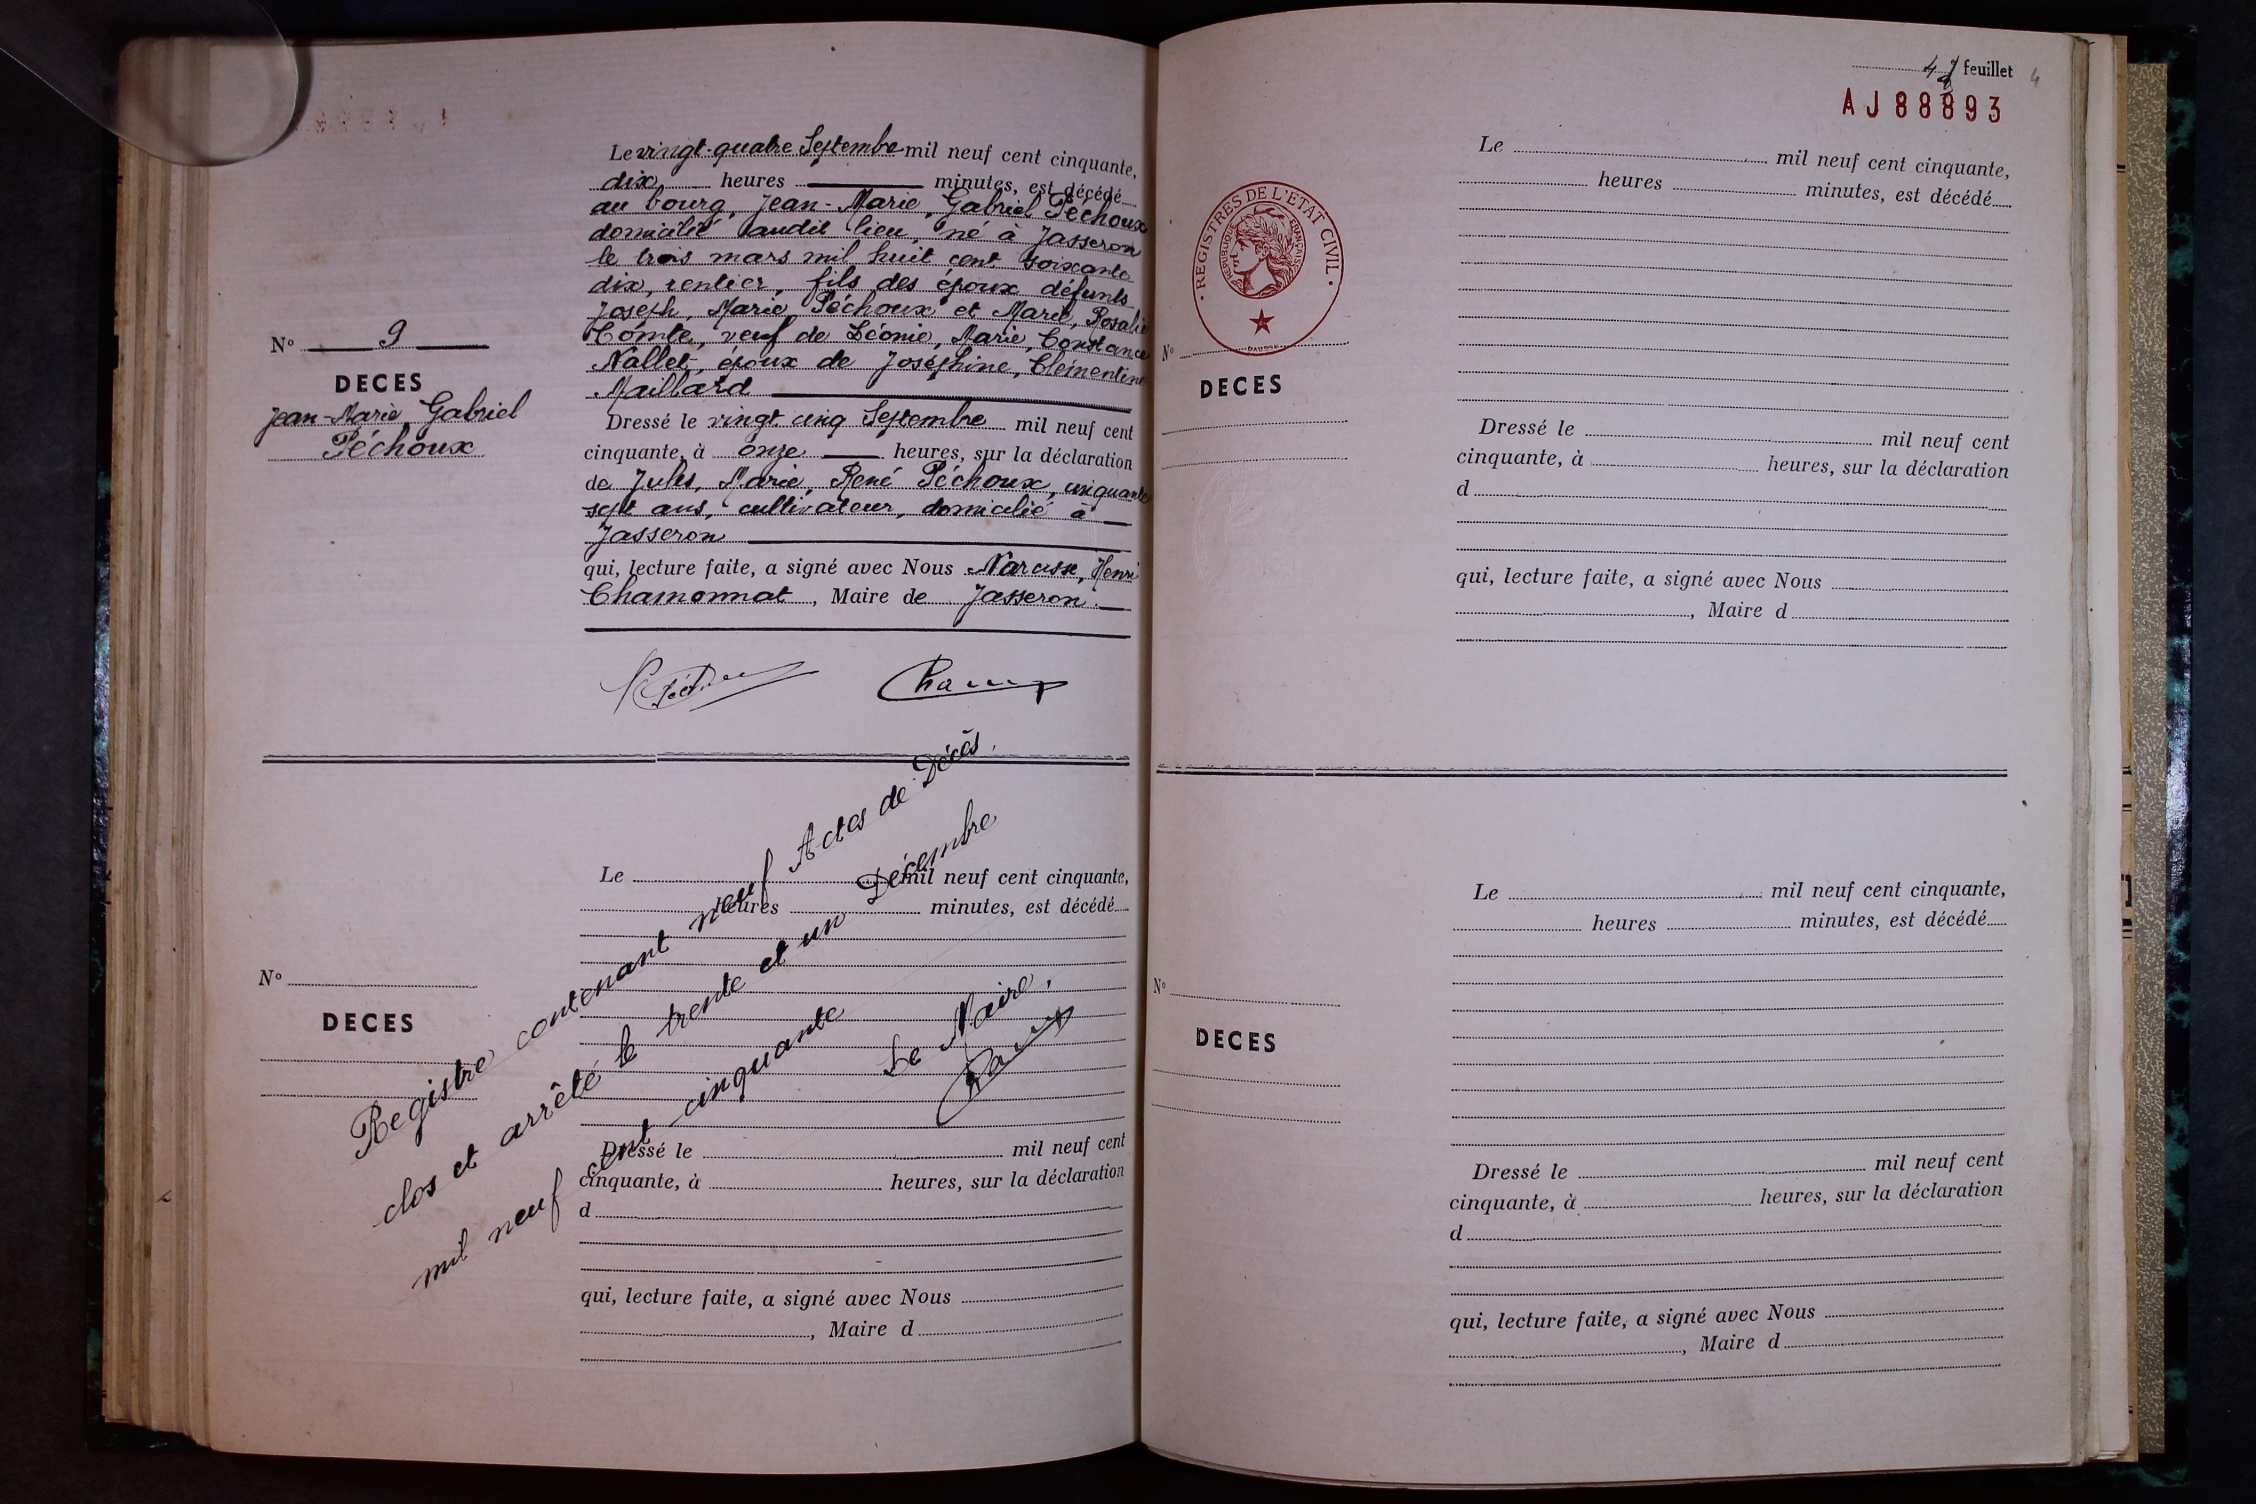 Le vingt-quatre Septembre mil neuf cent cinquante,
dix heures minutes, est décédé
au bourg, Jean-Marie, Gabriel Péchoux
domicilié audit lieu, né à Jasseron
le trois mars mil huit cent soixante
dix, rentier, fils des époux défunts
Joseph, Marie Péchoux et Marie, Rosalie
Comte, veuf de Léonie, Marie, Constance
Nallet, époux de Joséphine, Clémentine
Maillard
N° 9
DECES
Jean-Marie Gabriel
Péchoux
Dressé le vingt cinq Septembre mil neuf cent
cinquante, à onze heures, sur la déclaration
de Jules, Marie, René Péchoux, cinquante
sept ans, cultivateur, domicilié à
Jasseron
qui, lecture faite, a signé avec Nous Narcisse, Henri
Chamonnat, Maire de Jasseron.
Registre contenant neuf Actes de Décès
clos et arrêté le trente et un Décembre
mil neuf cent cinquante
Le Maire,
Le mil neuf cent cinquante,
heures minutes, est décédé
N°
DECES
Dressé le mil neuf cent
cinquante, à heures, sur la déclaration
d
qui, lecture faite, a signé avec Nous
, Maire d
feuillet 4
AJ88893
REGISTRES DE L'ETAT CIVIL
REPUBLIQUE FRANÇAISE
Le mil neuf cent cinquante,
heures minutes, est décédé
N°
DECES
Dressé le mil neuf cent
cinquante, à heures, sur la déclaration
d
qui, lecture faite, a signé avec Nous
, Maire d
Le mil neuf cent cinquante,
heures minutes, est décédé
N°
DECES
Dressé le mil neuf cent
cinquante, à heures, sur la déclaration
d
qui, lecture faite, a signé avec Nous
, Maire d